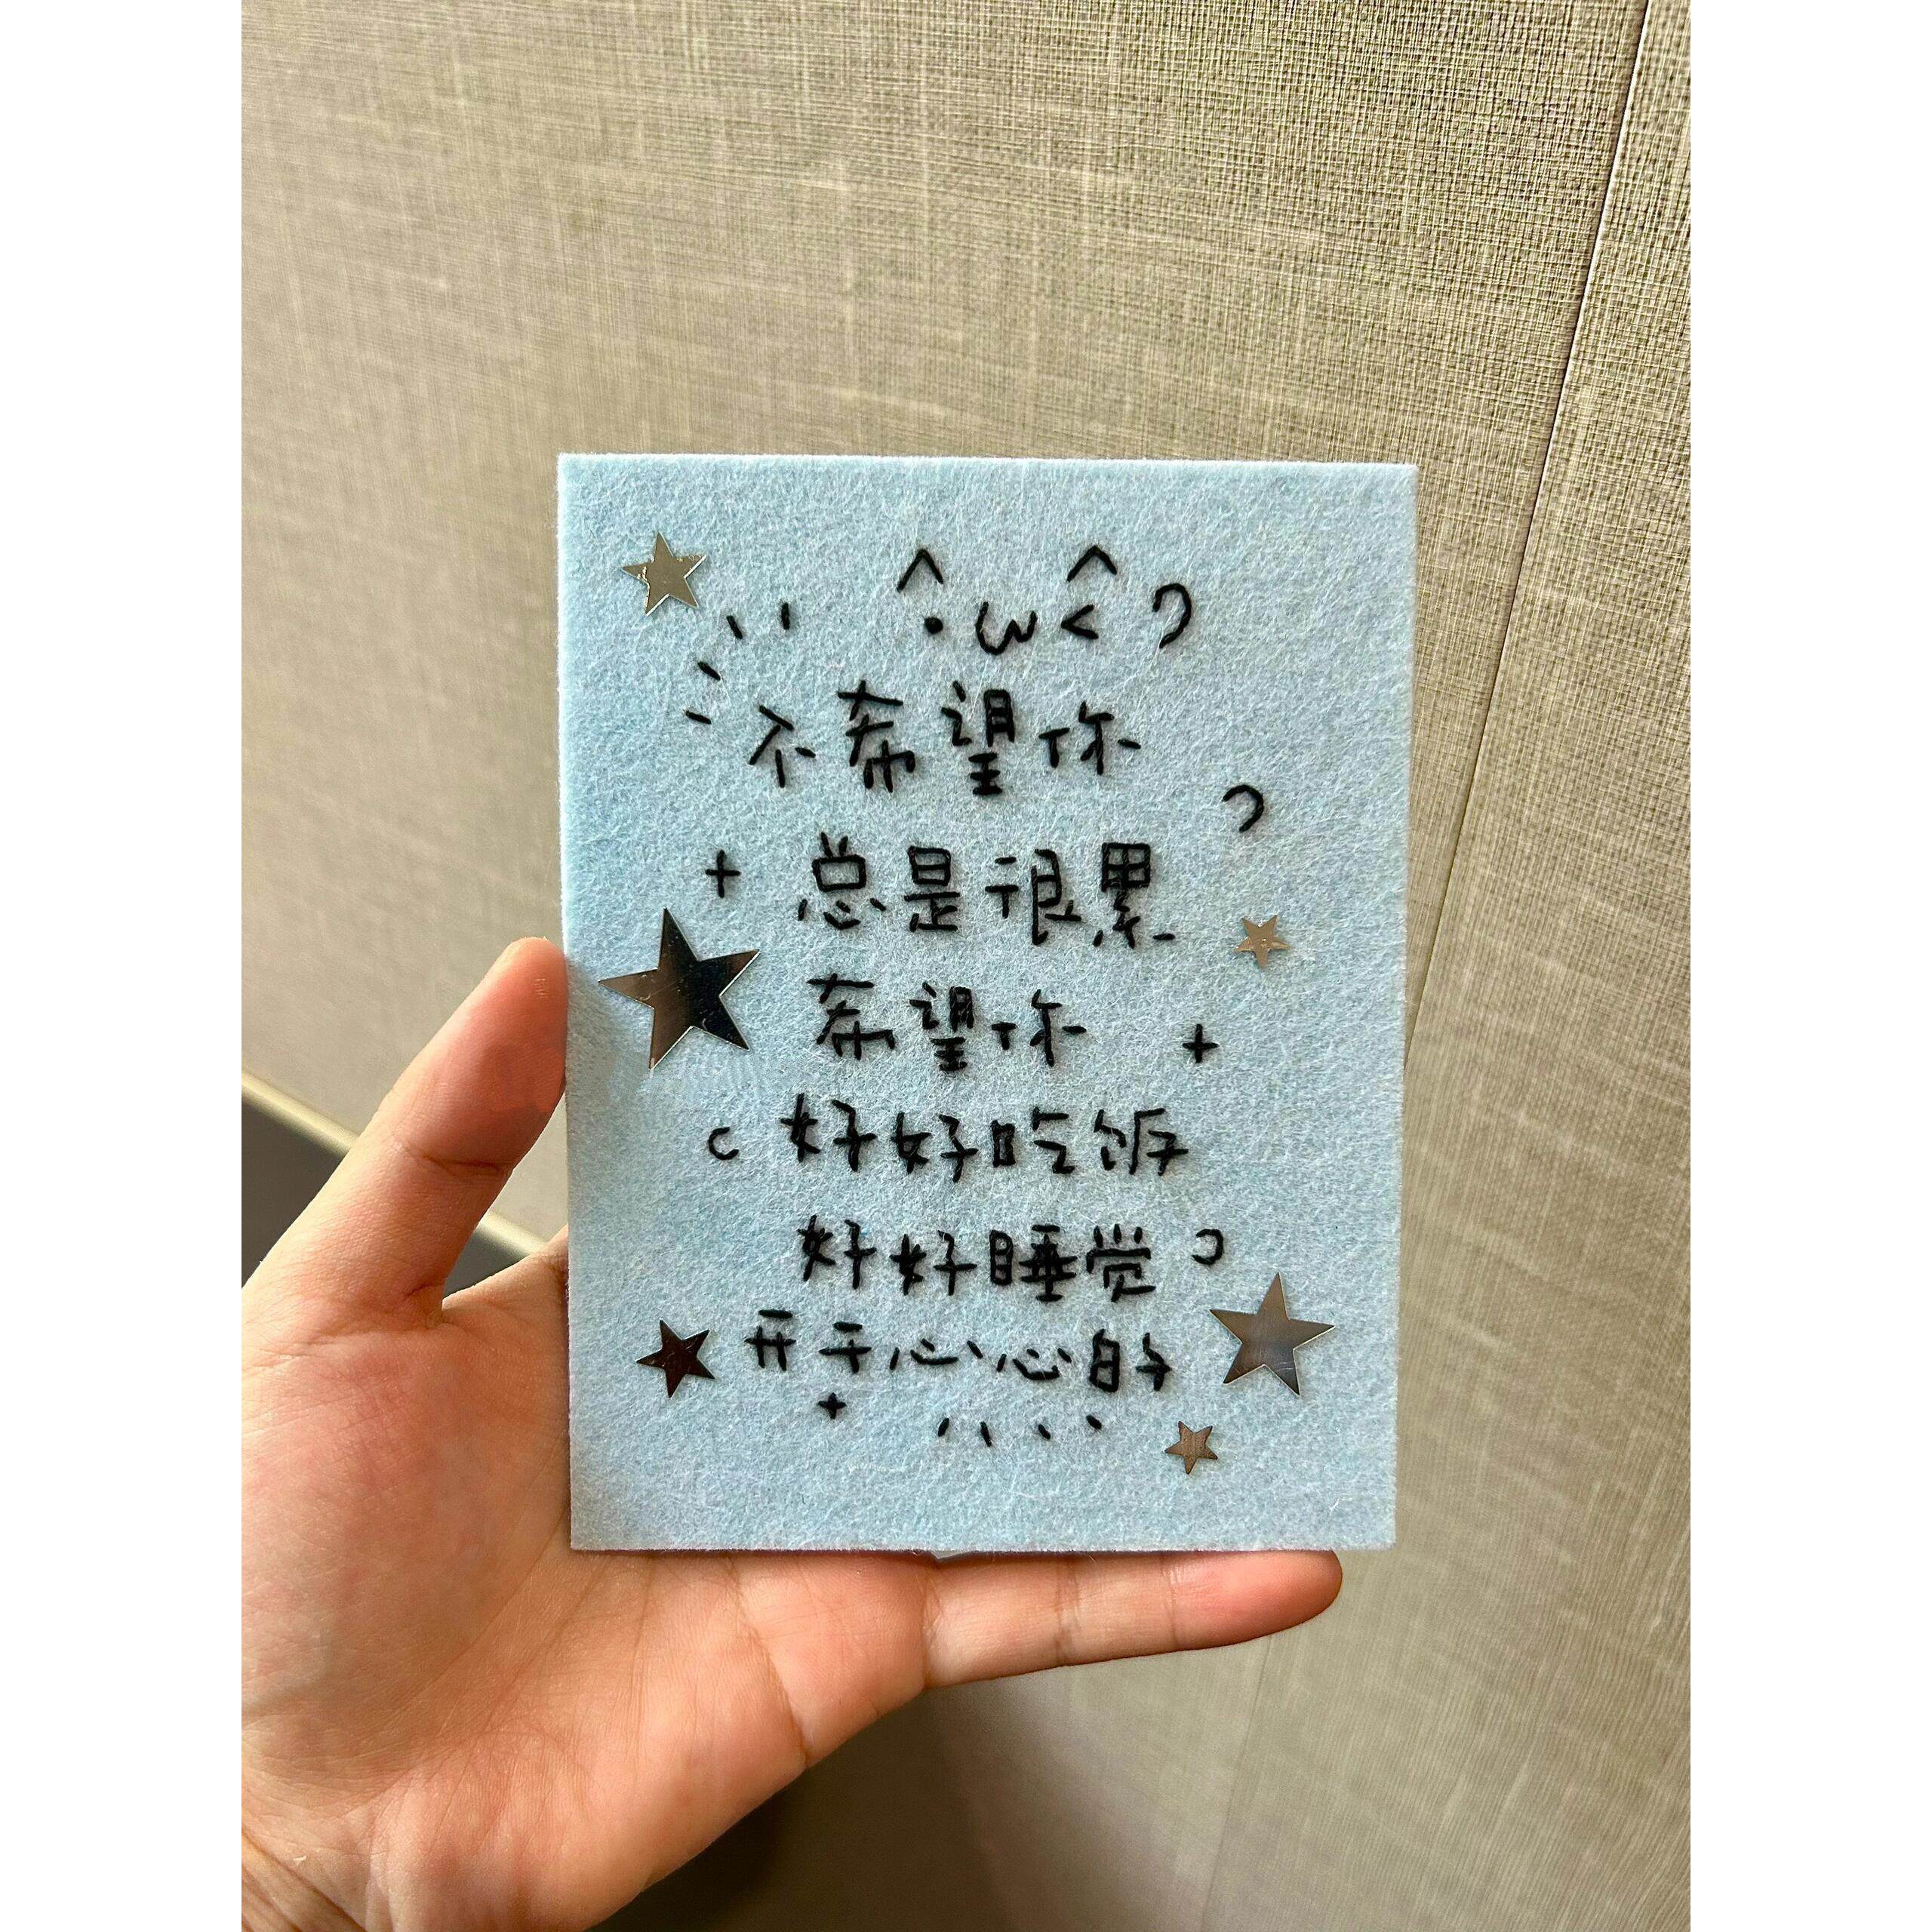 不希望你
总是很累
希望你
好好吃饭
好好睡觉
开开心心的